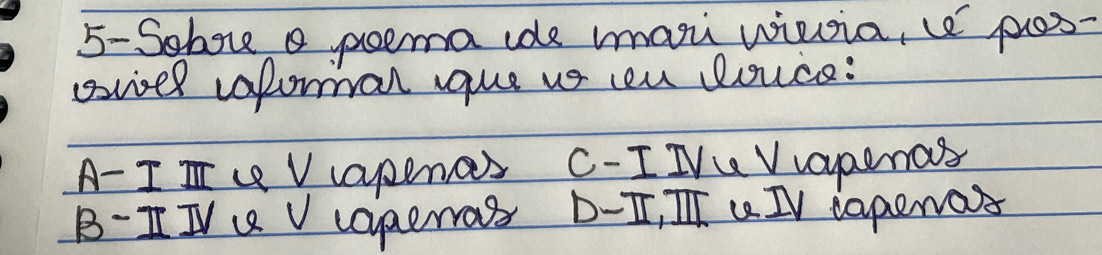 5-Sobre o poema de mari vieira, é pos-
sível afirmar que o eu lírico:
A-I III e V apenas C-I IV e V apenas
B-II IV e V apenas D-II, III e IV apenas